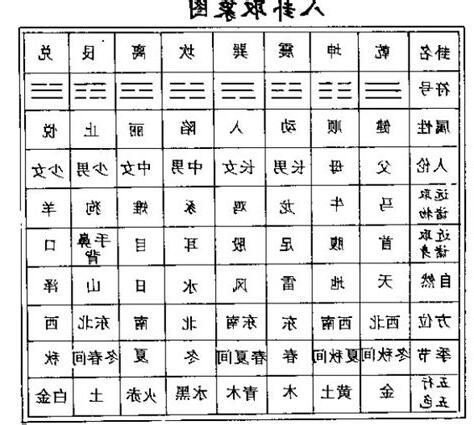 八卦取象图
卦名 乾 坤 震 巽 坎 离 艮 兑
符号
属性 健 顺 动 入 陷 丽 止 悦
人伦 父 母 长男 长女 中男 中女 少男 少女
远取诸物 马 牛 龙 鸡 豕 雉 狗 羊
近取诸身 首 腹 足 股 耳 目 手鼻背 口
自然 天 地 雷 风 水 日 山 泽
方位 西北 西南 东 东南 北 南 东北 西
季节 秋冬间 夏秋间 春 春夏间 冬 夏 冬春间 秋
五行五色 金 土黄 木 木青 水黑 火赤 土 金白